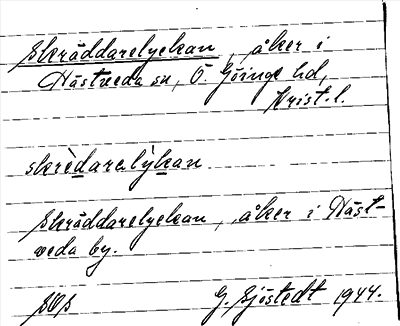 Skräddarelyckan, åker i
Hästveda sn, Ö. Göinge hd,
Krist. l.
skrèdarelỳkan
Skräddarelyckan, åker i Häst-
veda by.
SOS G. Sjöstedt 1944.